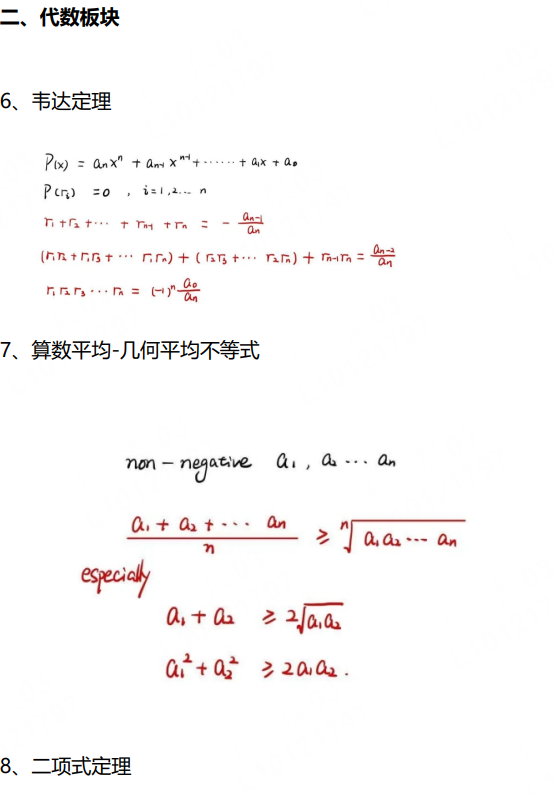 二、代数板块
6、韦达定理
P(x) = aₙxⁿ + aₙ₋₁ xⁿ⁻¹ + ······ + a₁x + a₀
P(rᵢ) = 0 , i=1,2... n
r₁ + r₂ + ··· + rₙ₋₁ + rₙ = - aₙ₋₁/aₙ
(r₁r₂ + r₁r₃ + ··· r₁rₙ) + (r₂r₃ + ··· r₂rₙ) + rₙ₋₁rₙ = aₙ₋₂/aₙ
r₁ r₂ r₃ ··· rₙ = (-1)ⁿ a₀/aₙ
7、算数平均-几何平均不等式
non-negative a₁ , a₂ ··· aₙ
(a₁ + a₂ + ··· aₙ)/n ≥ ⁿ√(a₁a₂ ··· aₙ)
especially
a₁ + a₂ ≥ 2√(a₁a₂)
a₁² + a₂² ≥ 2a₁a₂ .
8、二项式定理